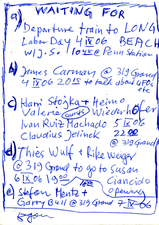 WAITING FOR
a) Departure train to LONG
Labor Day 4 IX 06 BEACH
W.J.S. 10 45 @ Penn Station
b) James Carman @ 319 Grand
4 IX 06 2015 to talk about UFOs
etc
c) Hari Stojka + Heimo
Valera Wiederhofer
Ivan Ruiz Machado 5 IX 06
Claudius Jelinek 22 00
@ 319 Grand
d) Thies Wulf + Rike Weiger
@ 319 Grand to go to Susan
6 IX 06 Ciancido
opening
e) Stefan Mentz +
Garry Bull @ 319 Grand
7 IX 06